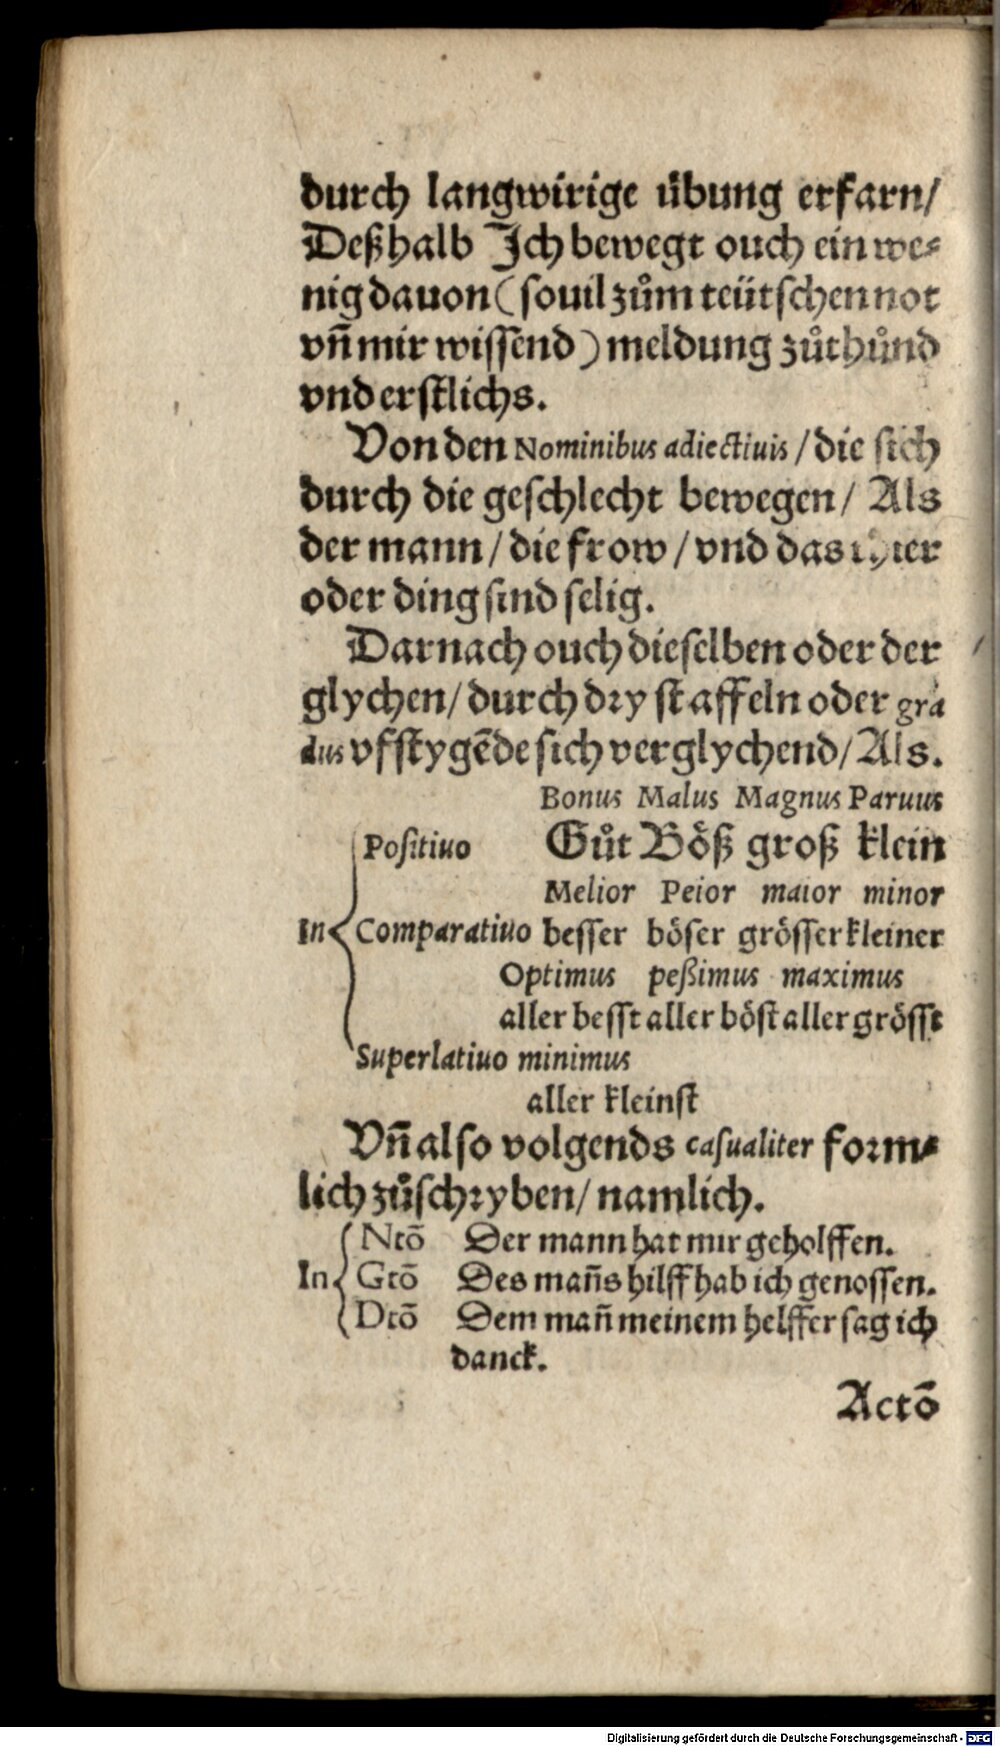 durch langwirige übung erfarn/
Deßhalb Jch bewegt ouch ein we⸗
nig dauon (souil zům teütschen not
vñ mir wissend) meldung zůthůnd
vnd erstlichs.
Von den Nominibus adiectiuis / die sich
durch die geschlecht bewegen / Als
der mann / die frow / vnd das thier
oder ding sind selig.
Darnach ouch dieselben oder der
glychen / durch dry staffeln oder gra
dus vfstygẽde sich verglychend / Als.
Bonus Malus Magnus Paruus
Positiuo Gůt Böß groß klein
Melior Peior maior minor
In Comparatiuo besser böser grösser kleiner
Optimus peßimus maximus
aller besst aller böst aller grösst
Superlatiuo minimus
aller kleinst
Vñ also volgends casualiter form⸗
lich zůschryben / namlich.
Nctõ Der mann hat mir geholffen.
In Gtõ Des mañs hilff hab ich genossen.
Dtõ Dem mañ meinem helffer sag ich
danck.
Actõ
Digitalisierung gefördert durch die Deutsche Forschungsgemeinschaft - DFG